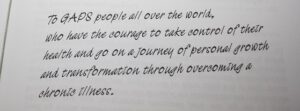 To GAPS people all over the world,
who have the courage to take control of their
health and go on a journey of personal growth
and transformation through overcoming a
chronic illness.